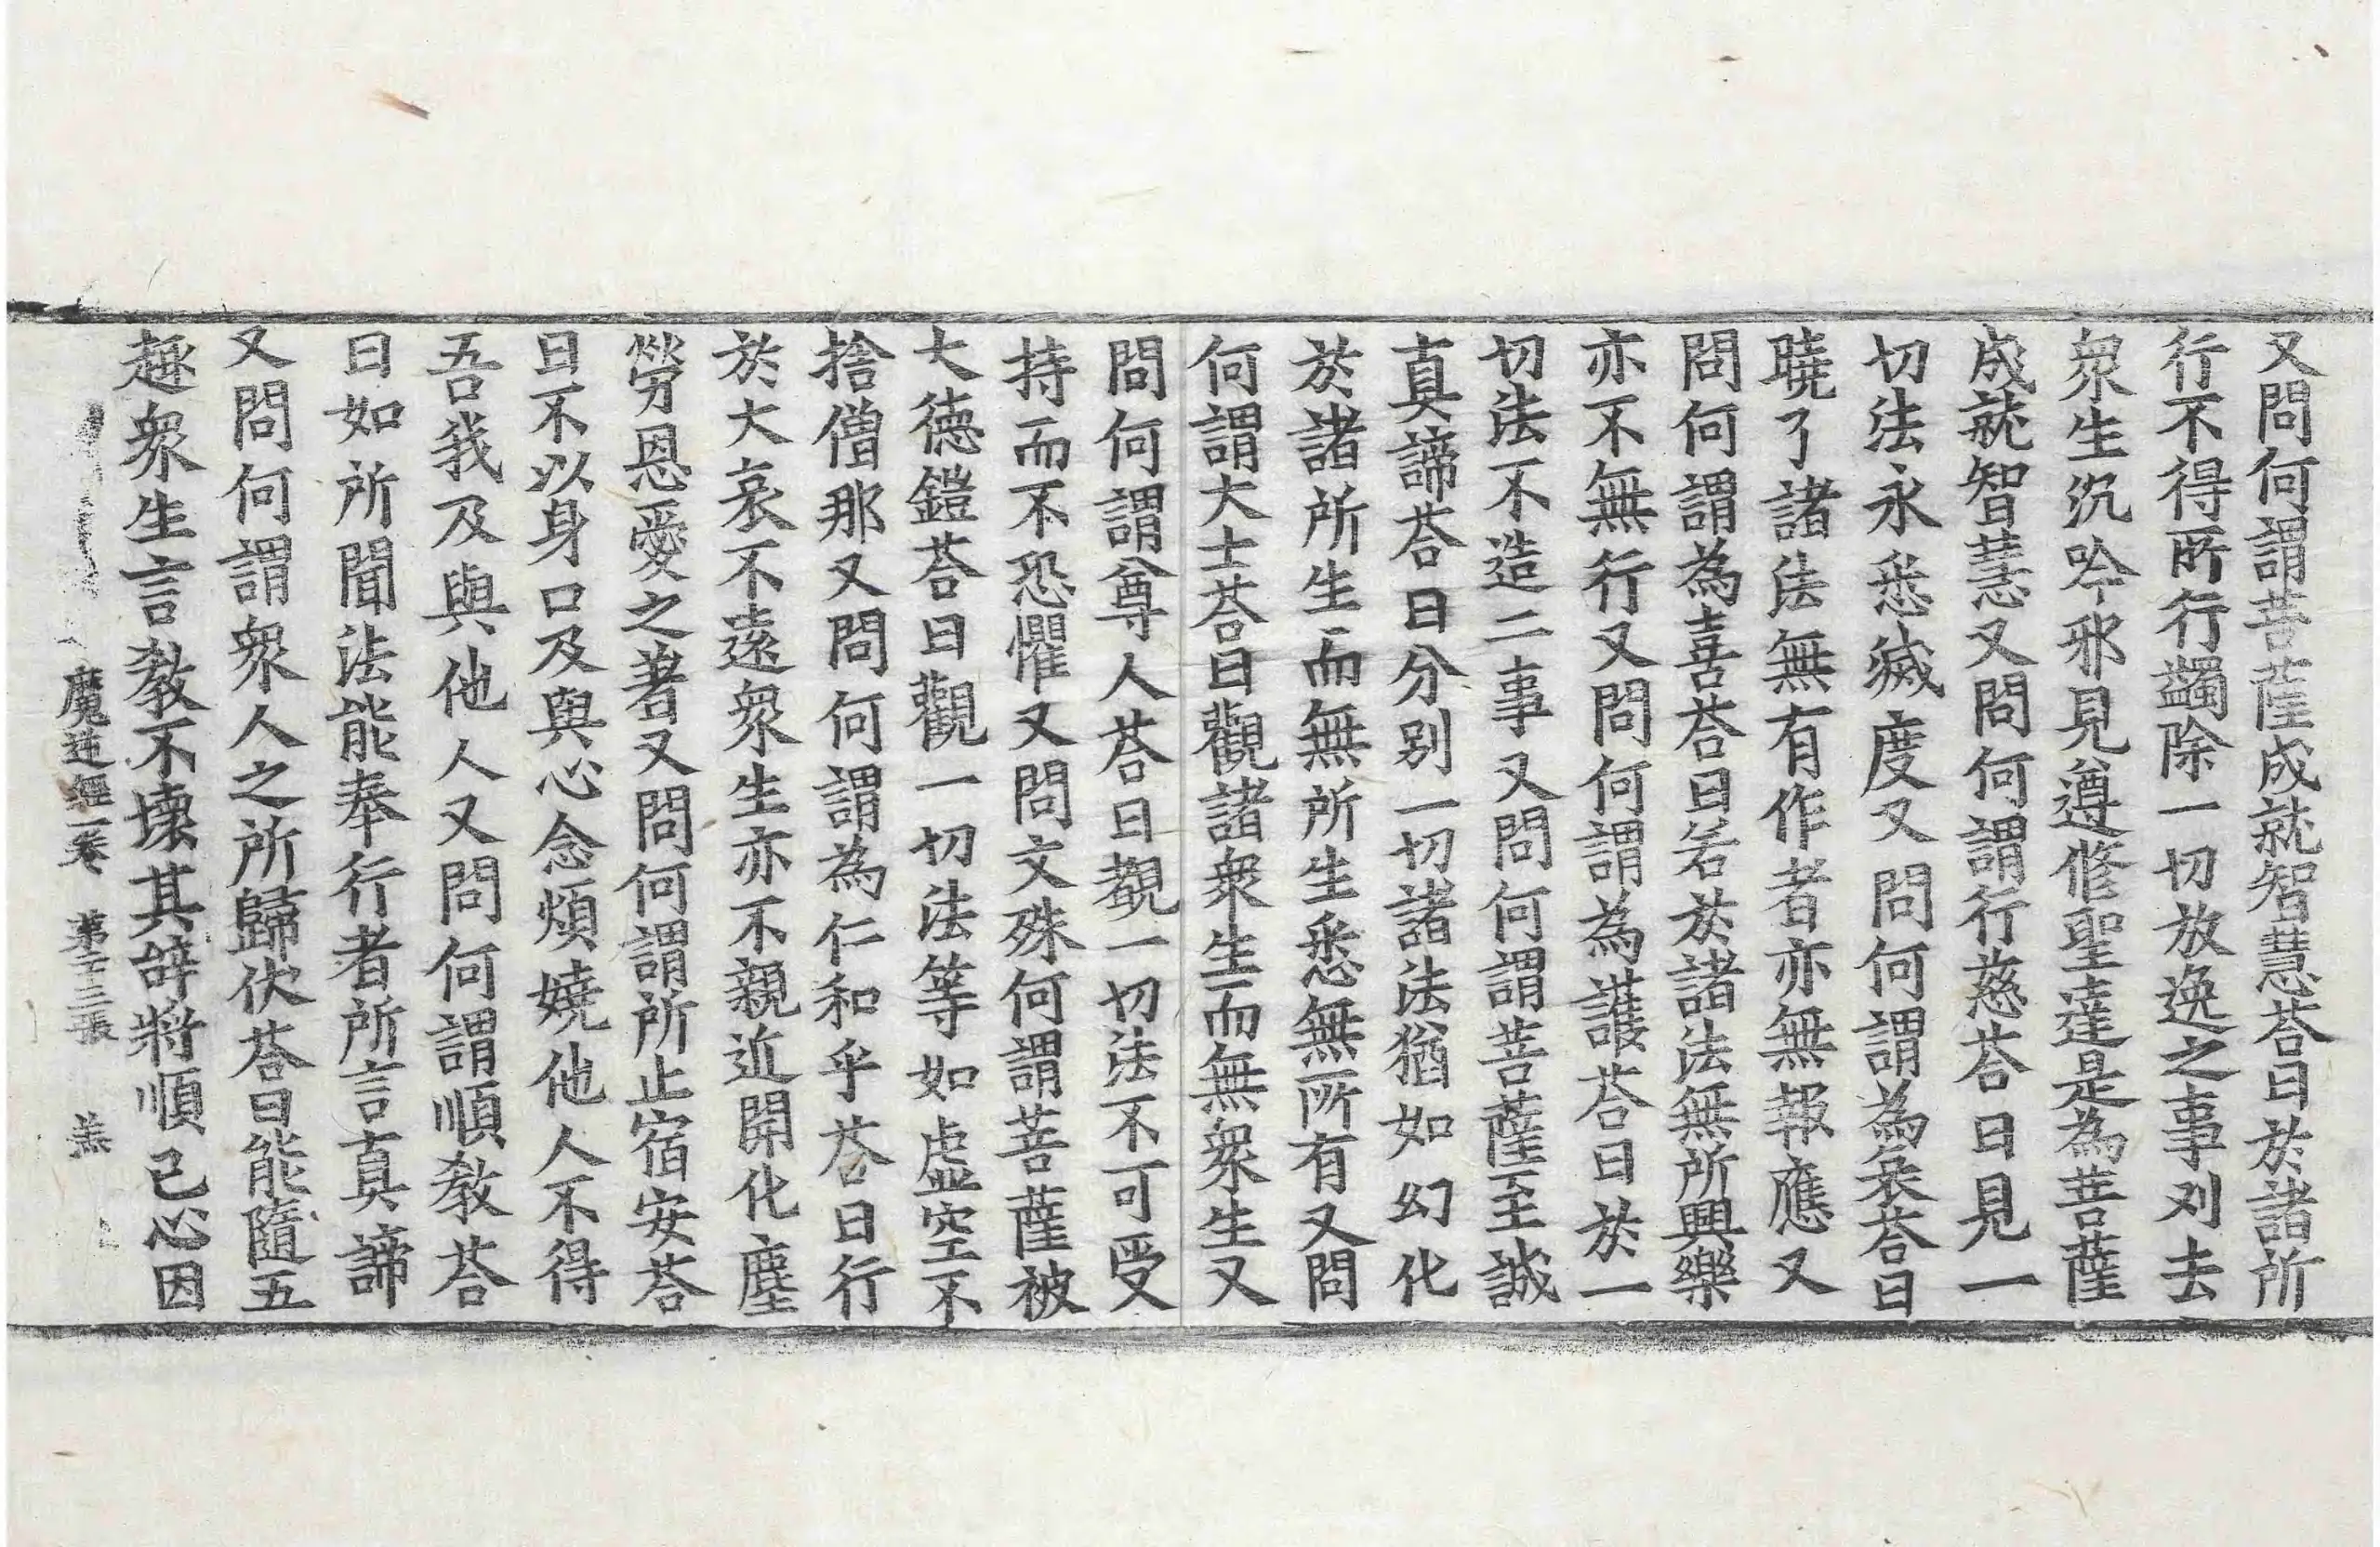 又問何謂菩薩成就智慧荅曰於諸所
行不得所行蠲除一切放逸之事列去
衆生沉吟邪見遵修聖達是為菩薩
成就智慧又問何謂行慈荅曰見一
切法永悉滅度又問何謂為哀荅曰
曉了諸法無有作者亦無報應又
問何謂為喜荅曰若於諸法無所興樂
亦不無行又問何謂為護荅曰於一
切法不造二事又問何謂菩薩至誠
真諦荅曰分別一切諸法猶如幻化
於諸所生而無所生悉無所有又問
何謂大士荅曰觀諸衆生而無衆生又
問何謂尊人荅曰觀一切法不可受
持而不恐懼又問文殊何謂菩薩被
大德鎧荅曰觀一切法等如虛空不
捨僧那又問何謂為仁和乎荅曰行
於大哀不遠衆生亦不親近開化塵
勞恩愛之著又問何謂所止宿安荅
曰不以身口及與心念煩嬈他人不得
吾我及與他人又問何謂順教荅
曰如所聞法能奉行者所言真諦
又問何謂衆人之所歸伏荅曰能隨五
趣衆生言教不壞其辭將順己心因
魔逆經一卷 第十三張 羔